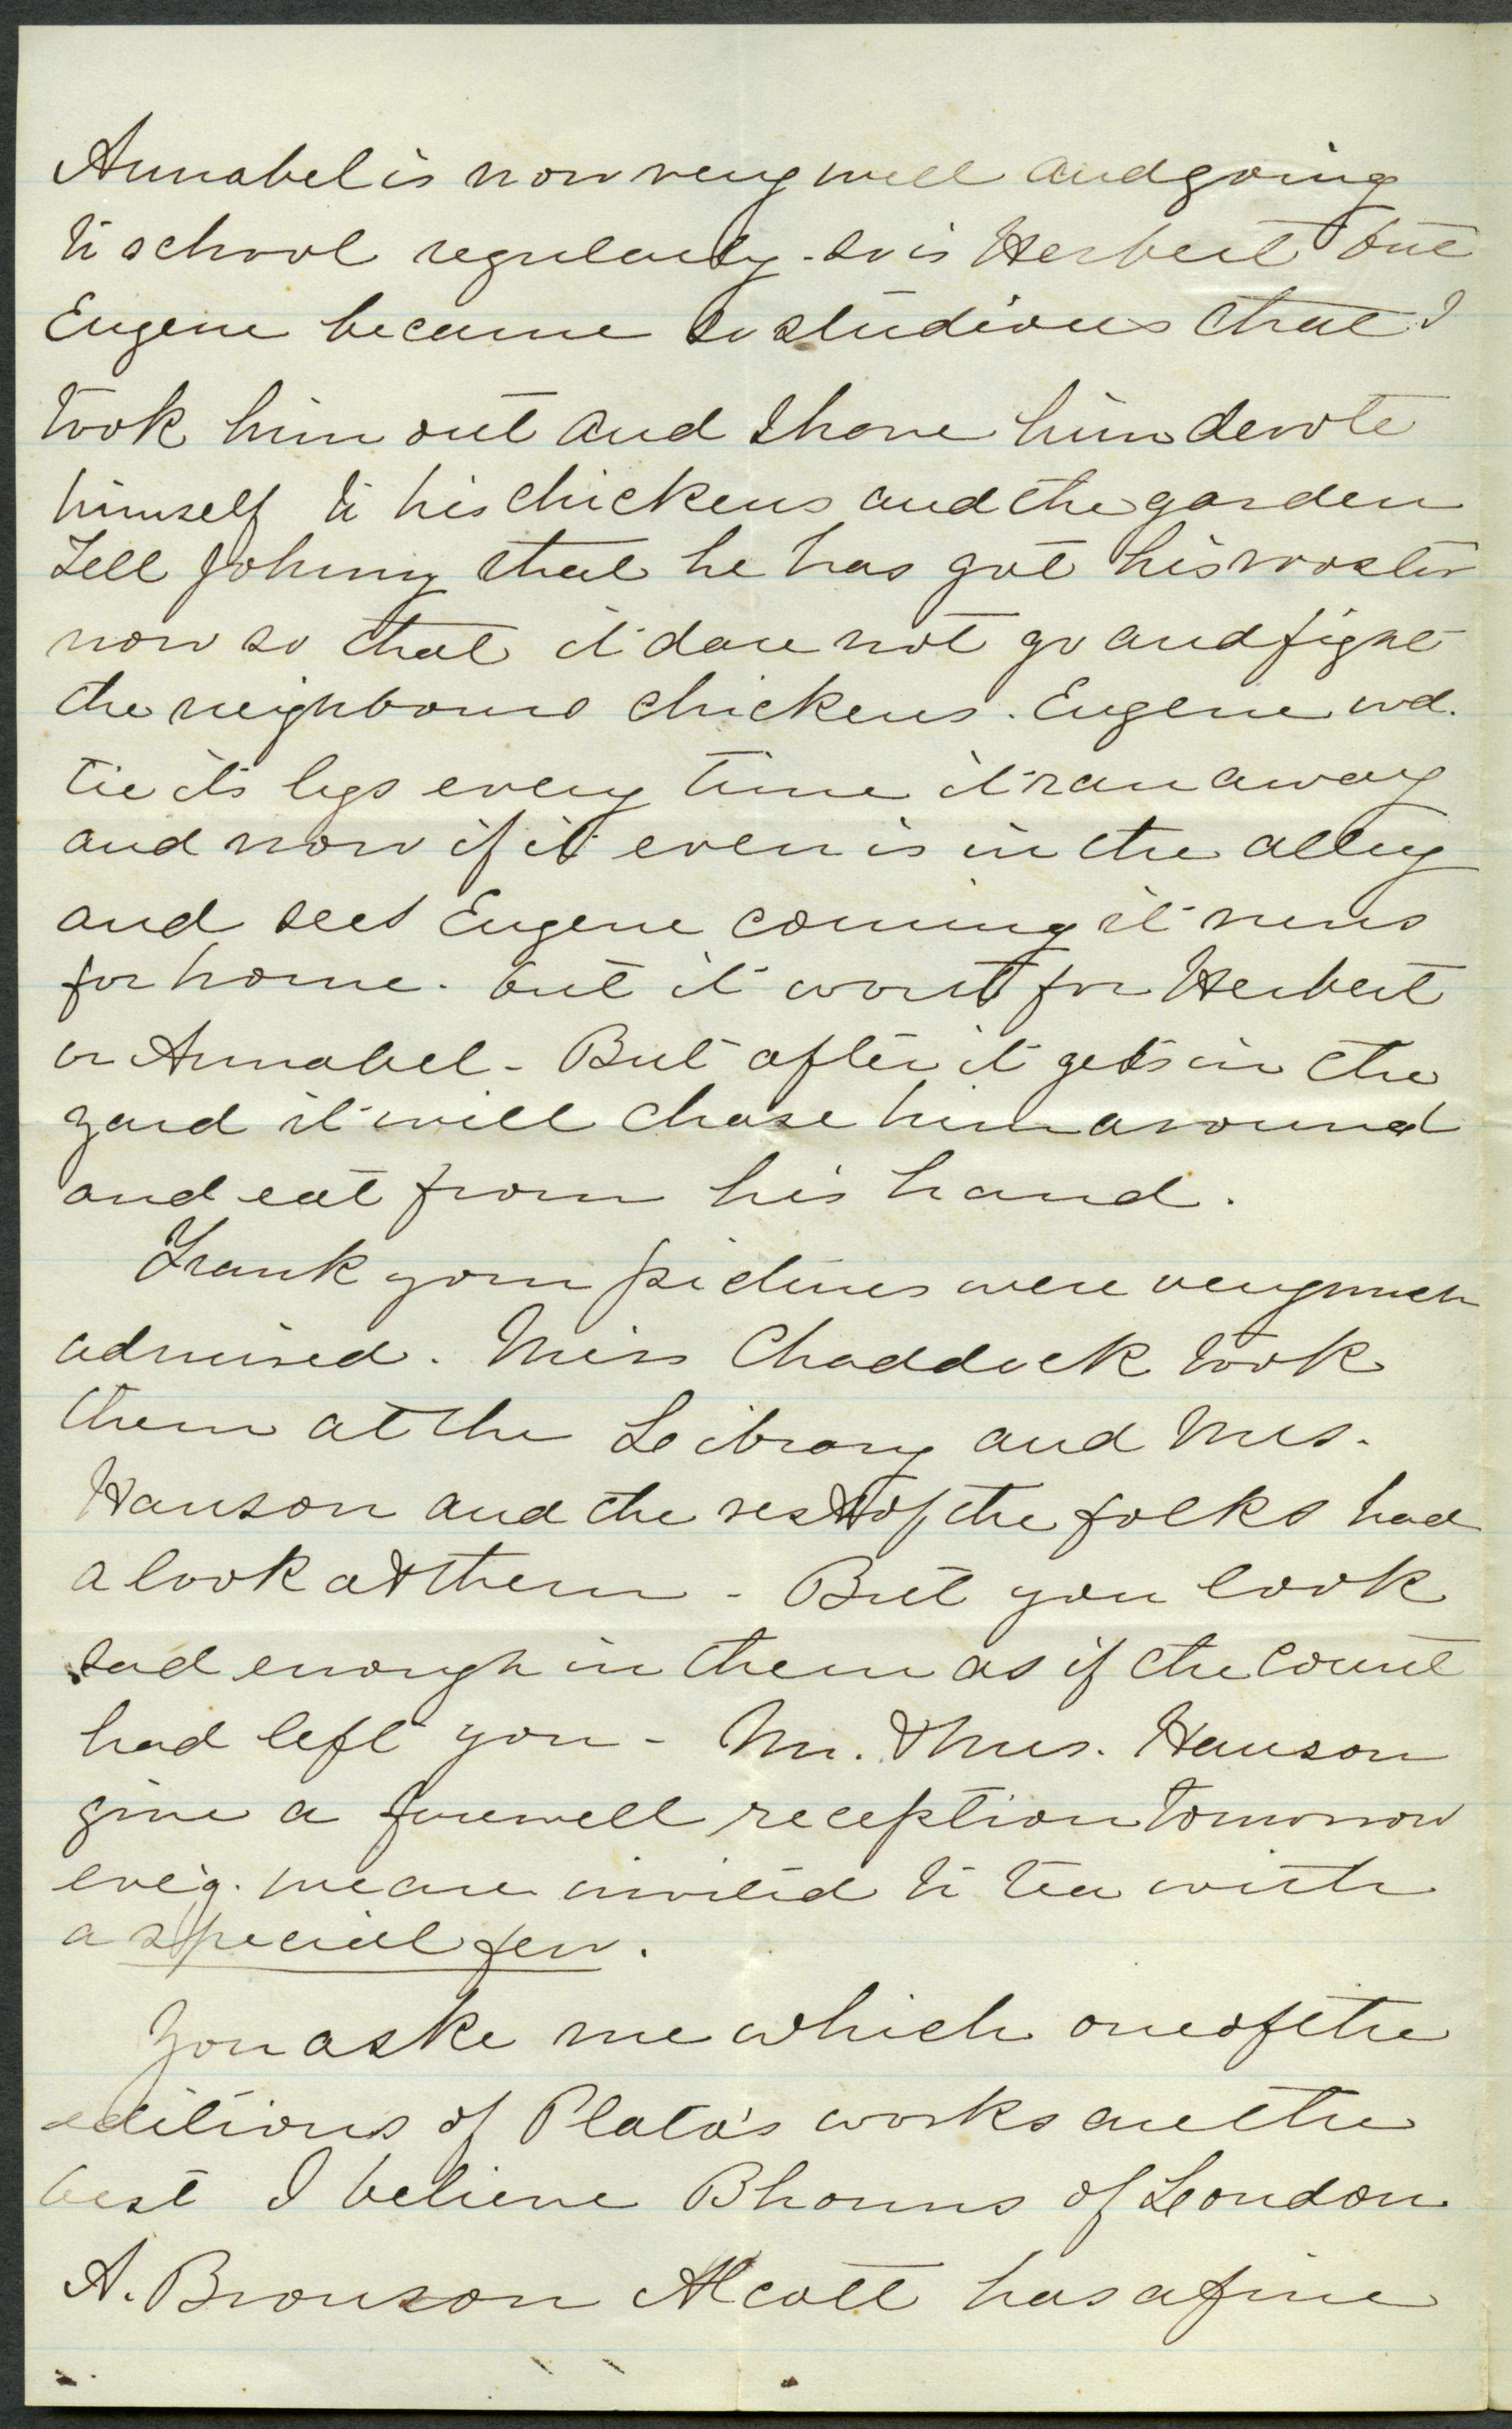 Annabel is now very well and going
to school regularly - so is Herbert but
Eugene became so studious that I
took him out and I have him devote
himself to his chickens and the garden
Tell Johnny that he has got his rooster
now so that it dare not go and fight
the neighbours chickens. Eugene wd.
tie its legs every time it ran away
and now if it even is in the alley
and sees Eugene coming it runs
for home. but it wont for Herbert
or Annabel - But after it gets in the
yard it will chase him around
and eat from his hand.
Frank your pictures were very much
admired. Miss Chaddock took
them at the Library and Mrs.
Hanson and the rest of the folks had
a look at them - But you look
sad enough in them as if the Count
had left you - Mr. & Mrs. Hanson
give a farewell reception tomorrow
eve'g. we are invited to tea with
a special few.
You aske me which one of the
editions of Plato's works are the
best I believe Bhonns of London
A. Bronson Alcott has a fine